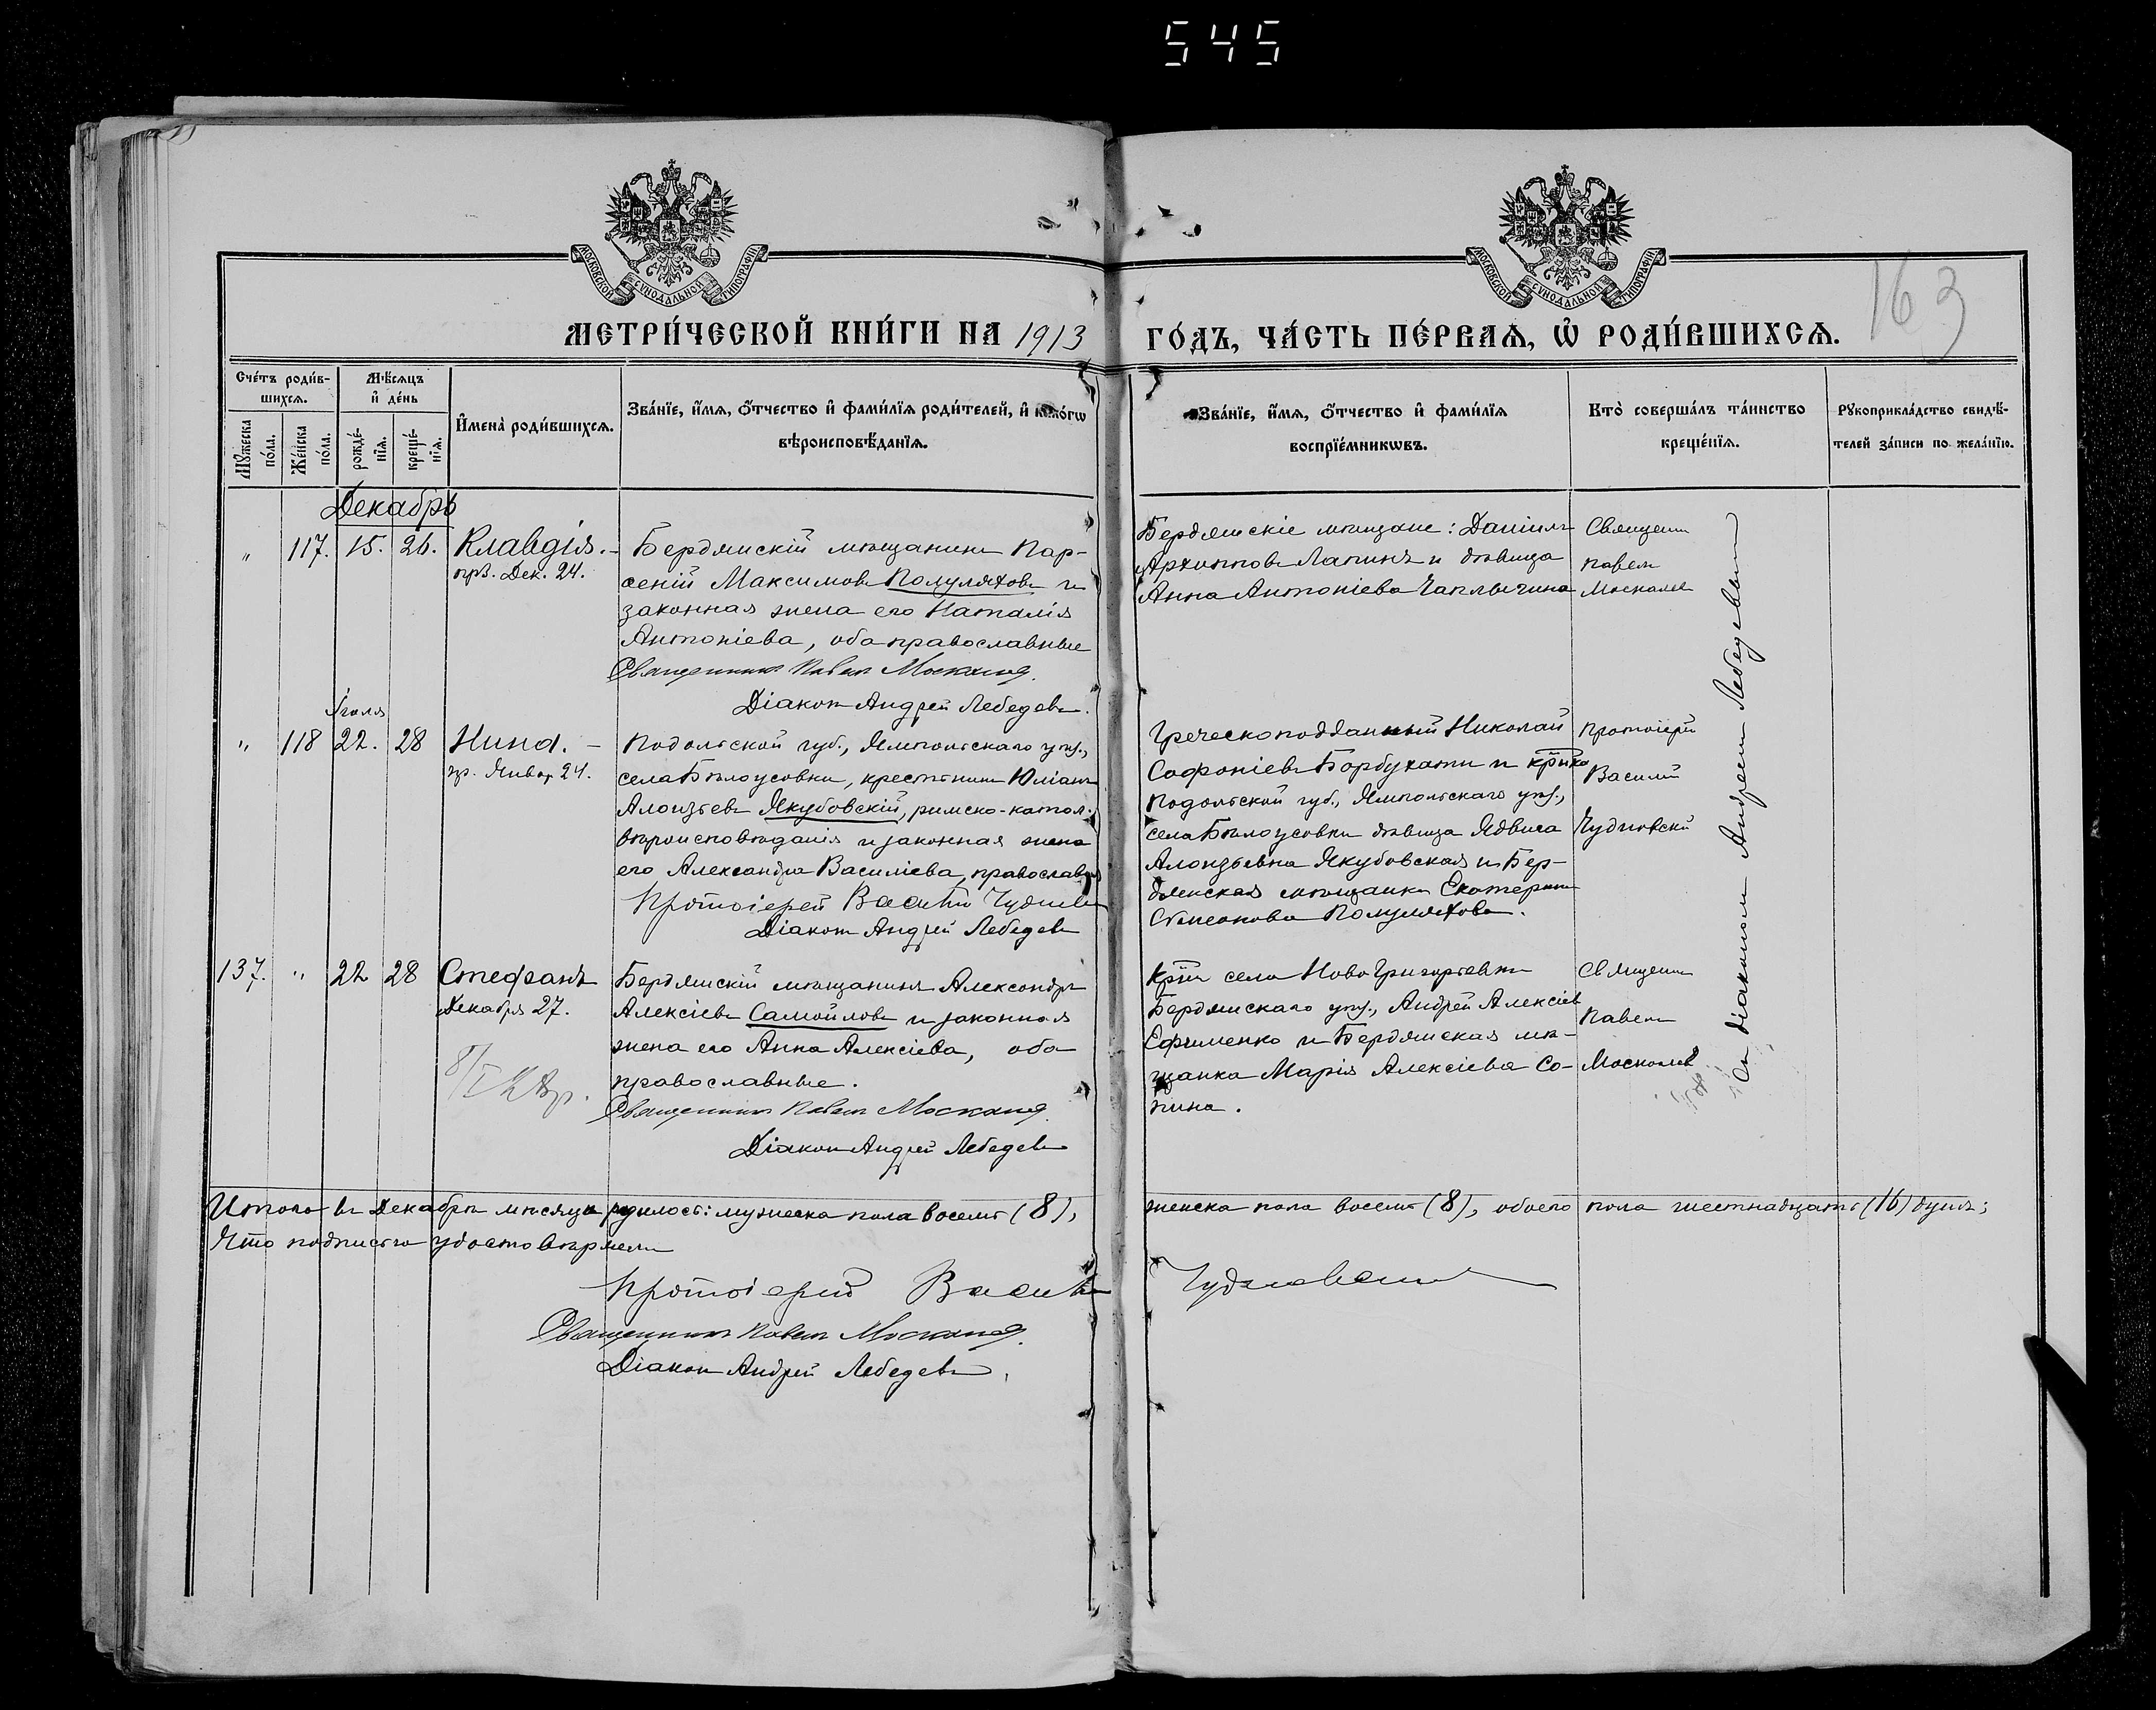 545
МОСКОВСКОЙ СУНОДАЛЬНОЙ ТИПОГРАФІИ
МОСКОВСКОЙ СУНОДАЛЬНОЙ ТИПОГРАФІИ
163
МЕТРИ́ЧЕСКОЙ КНИ́ГИ НА 1913 ГО́ДЪ, ЧА́СТЬ ПЕ́РВАѦ, Ѡ҆ РОДИ́ВШИХСѦ.
Сче́тъ роди́в-
шихсѧ.
Мꙋ́жеска по́ла.
Же́нска по́ла.
Мѣ́сѧцъ
и҆ де́нь
рожде́-
нїѧ.
креще́-
нїѧ.
И҆мена̀ роди́вшихсѧ.
Зва́нїе, и҆́мѧ, ѻ҆́тчество и҆ фами́лїѧ роди́телей, и҆ како́гѡ
вѣроисповѣ́данїѧ.
Зва́нїе, и҆́мѧ, ѻ҆́тчество и҆ фами́лїѧ
воспрїе́мникѡвъ.
Кто̀ соверша́лъ та́инство
креще́нїѧ.
Рꙋкоприкла́дство свидѣ́-
телей за́писи по жела́нїю.
Декабрь
" 117. 15. 26. Клавдія. –
прз. Дек. 24.
Бердянскій мѣщанинъ Пар-
сеній Максимовъ Полуляховъ и
законная жена его Наталія
Антоніева, оба православные
Священникъ Павелъ
Діаконъ Андрей Лебедевъ.
Бердянскіе мѣщане: Даніилъ
Архипповъ Лапинъ и дѣвица
Анна Антоніева Чаплыгина
Священ.
Павелъ
Іюля
" 118 22. 28 Нина. –
пр. Январ. 24.
Подольской губ., Ямпольскаго уѣз.,
села Бѣлоусовки, крестьянинъ Юліанъ
Алоизьевъ Якубовскій, римско-катол.
вѣроисповѣданія и законная жена
его Александра Василіева, православн.
Протоіерей Василій
Діаконъ Андрей Лебедевъ
Греческоподданный Николай
Софоніевъ Барбухати и кр‑нка
Подольской губ., Ямпольскаго уѣз.,
села Бѣлоусовки дѣвица Ядвига
Алоизьевна Якубовская и Бер-
дянская мѣщанка Екатерина
Стмеонова Полуляхова.
Протоіерей
Василій
Чудновскій
137. " 22 28 Стефанъ
Декабря 27.
Бердянскій мѣщанинъ Александръ
Алексіевъ Самойловъ и законная
жена его Анна Алексіева, оба
православные.
Священникъ Павелъ
Діаконъ Андрей Лебедевъ
Кр‑нъ села Новогригорьевки
Бердянскаго уѣз., Андрей Алексіевъ
Ефименко и Бердянская мѣ-
щанка Марія Алексіева Со-
пина.
Священ.
Павелъ
Съ діакономъ Андреемъ Лебедевымъ
Итого въ Декабрѣ мѣсяцѣ родилось: мужеска пола восемь (8), женска пола восемь (8), обоего пола шестнадцать (16) душъ;
Что подписью удостовѣряемъ
Протоіерей Василій Чудновскій
Священникъ Павелъ
Діаконъ Андрей Лебедевъ